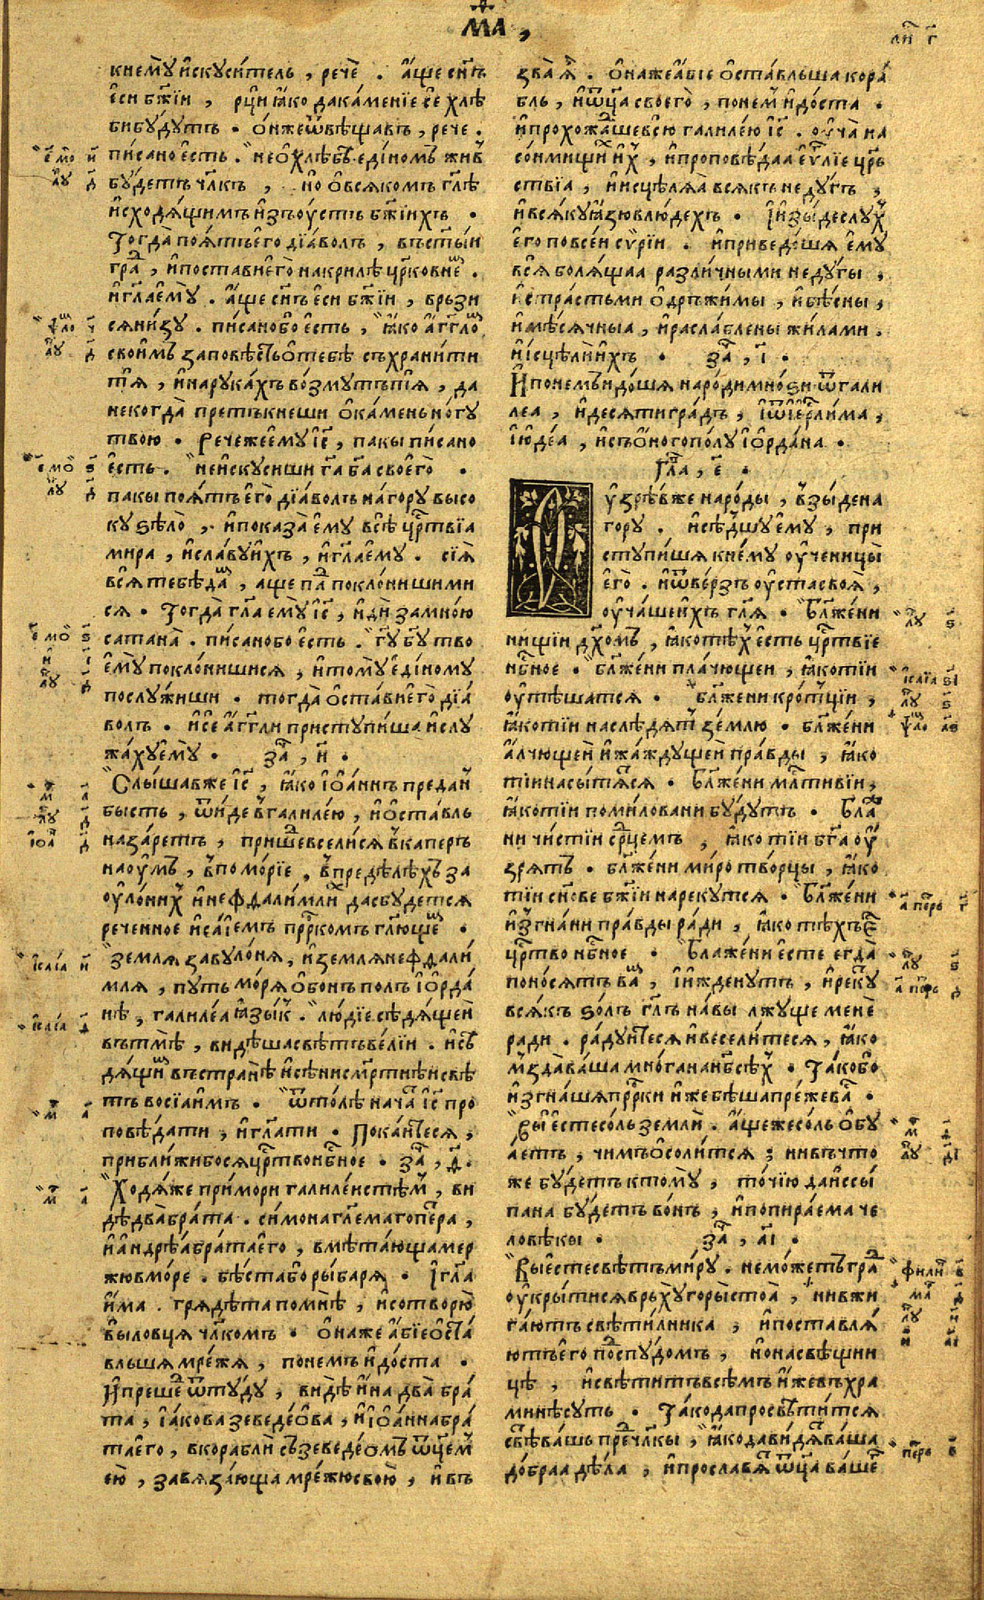 МА,
ли҃ г҃
кнѐму и҆скуси́тель, речѐ. а҆ще сн҃ъ
е҆си бж҃їи, рцы̀ ꙗ҆ко да ка́менїе се̑ хлѣ́
би бу́дутъ. ѻ҆нже ѿвѣщавъ, рече.
писано е҆сть. не ѻ҆ хлѣбѣ еди́номъ жив
бу́детъ чл҃къ, но̀ ѻ҆ всякомъ гл҃ѣ
и҆сходя́щимъ и҆зъ оу҆стъ бж҃їихъ.
Тогда̀ поятъ его̀ дїа́волъ, въ ст҃ы́и
гра, и҆ постави его̀ на крилѣ цр҃ковнѣ.
и҆ гл҃а е҆мꙋ̀. а҆ще сн҃ъ е҆си бж҃їи, врьзи
ся ни́зу. писано бо е҆сть, ꙗ҆ко а҆гг҃ло
свои́мъ заповѣсть ѻ҆ тебѣ съхрани́ти
тя̀, и҆ на рука́хъ во́змутъ тя̀, да
некогда̀ претъкнеши ѻ҆ ка́мень но́гу
твою. Рече же е҆му і҆с҃, пакы пи́сано
е҆сть. не и҆скусиши гд҃а бг҃а своего̀.
пакы поя́тъ его̀ дїа́волъ на гору высо
ку ѕѣло̀, и҆ показа̀ е҆му всѧ̀ цр҃твїа
мира, и҆ сла́ву и҆хъ, и҆ гл҃а е҆му. сїѧ̀
вся̀ тебѣ да, аще па поклониши ми
ся. Тогда̀ гл҃а е҆мꙋ̀ і҆с҃, и҆дѝ за мно́ю
сатана̀. писано бо е҆сть. гд҃у бг҃у тво
е҆мꙋ̀ поклонишися, и҆ тому̀ е҆ди́ному
послу́жиши. тогда̀ ѻ҆ста́ви его̀ дїа́
волъ. и҆ се а҆гг҃ли приступиша и҆ слу
жа́ху е҆мꙋ̀. за, и҃.
Слы́шав же і҆с҃, ꙗ҆ко і҆ѻ҆а́ннъ преда́н
бысть, ѿи́де в галиле́ю, и҆ ѻ҆ста́вль
наза́ретъ, прише́д вселися в каперъ
наоу́мъ, в помо́рїе, в предѣ́лѣхъ за
оуло́них и҆ нефдали́млих да сбу́детсѧ
реченное и҆са́їемъ прр҃комъ гл҃юще.
земля̀ завуло́ня, и҆ земля нефдали́
мля, путь мо́ря ѻ҆бо́нъ полъ і҆ѻ҆рда́
нѣ, галиле́а ꙗ҆зы́к. лю́дїе сѣдя́щеи
въ тмѣ̀, ви́дѣша свѣтъ ве́лїи. и҆ сѣ
дя́щи въ странѣ и҆ сѣ́ни см҃ртнѣи свѣ
тъ восїа и҆мъ. ѿто́лѣ нача і҆с҃ про
повѣ́дати, и҆ гл҃ати. Пока́итеся,
прибли́жи бо ся цр҃тво нбⷭ҇ное. за, ѳ҃.
Ходя́ же при мори галиле́истѣм, ви
дѣ два̀ бра́та. си́мона гл҃емаго пе́тра,
и҆ а҆ндрѣ́а бра́та его̀, вмѣта́юща мер
жю в мо́ре. бѣ́ста бо ры́баря. І҆ гл҃а
и҆ма. гряде́та по мнѣ̀, и҆ сотворю̀
вы̀ ловця чл҃комъ. ѻ҆на же а҆бїе ѻ҆ста́
вльша мре́жя, по немъ и҆до́ста.
И҆ преше ѿту́ду, ви́дѣ и҆на два̀ бра́
та, і҆а́кова зеведе́ѻва, и҆ і҆ѻ҆а́нна бра́
та его̀, в кораблѝ съ зеведе́ѻмъ ѿц҃ем
ею̀, завяза́юща мре́жю свою̀, и҆ въ
зва̀ ꙗ҆̀. ѻ҆на же а҆́бїе ѻ҆ста́вльша кора́
бль, и҆ ѿц҃а своего̀, по нем и҆до́ста.
и҆ прохожа́ше всю галиле́ю і҆с҃. оу҆ча̀ на
со́нмищих и҆х, и҆ проповѣ́даа е҆ѵⷢ҇лїе цр҃ь
ствїа, и҆ исцѣля́а всякъ не ду́гъ,
и҆ всяку ꙗ҆зю в лю́дехъ. І҆ и҆зы́де слу́х
его по всеи сѵ҆рїи. и҆ приведо́шя е҆му́
вся̀ боля́щаа разли́чными неду́гы,
и҆ стра́стьми ѻ҆дръжи́мы, и҆ бѣ́сны,
и҆ мѣ́сячныа, и҆ расла́блены жи́лами.
и҆ и҆сцѣлѝ и҆хъ. за, і҃.
И҆ по немъ и҆до́шя наро́ди мно́ѕи ѿ гали
леа, и҆ десяти гра́дъ, і҆ ѿ і҆ерⷭ҇ли́ма,
і҆ ю҆де́а, и҆ съ ѻ҆́ного по́лу і҆ѻ҆рда́на.
гла, е҃.
У҆зрѣ́в же наро́ды, взы́де на
гору. и҆ сѣ́дшу е҆му, при
ступи́шя к нему оу҆ченицы̀
его̀. и҆ ѿве́рзъ оу҆ста своя̀,
оу҆ча́ше и҆хъ гл҃я. Бл҃же́ни
нищїи дх҃омъ, ꙗ҆ко тѣх есть цр҃твїе
нбⷭ҇ное. бл҃же́ни пла́чющеи, ꙗ҆ко тїи
оу҆тѣ́шатся. бл҃же́ни кро́тцїи,
ꙗ҆ко тїи наслѣ́дят зе́млю. бл҃же́ни
а҆́лчющеи и҆ жа́ждущеи пра́вды, ꙗ҆ко
тїи насы́тятся. Бл҃же́ни мл҃тивїи,
ꙗ҆ко тїи поми́ловани бу́дутъ. Бл҃а
ни чи́стїи ср҃цемъ, ꙗ҆ко тїи бг҃а оу҆
зрятъ. бл҃же́ни миротво́рцы, ꙗ҆ко
тїи сн҃ове бж҃їи нареку́тся. Бл҃же́ни
и҆згна́ни пра́вды ра́ди, ꙗ҆ко тѣ́хъ е҆
цр҃тво нбⷭ҇ное. Блаже́ни е҆сте егда̀
поно́сятъ ва, и҆ и҆жденутъ, и҆ реку
всякъ ѕолъ гл҃ъ на́ вы лжуще менѐ
ради. ра́дуитеся и҆ весели́теся, ꙗ҆ко
мзда̀ ва́ша мно́га на нб҃сѣх. Та́ко бо
и҆згна́шя прр҃ки и҆же бѣ́ша пре́же ва.
Вы̀ е҆сте со́ль землѝ. а҆ще же со́ль ѻ҆бу
а́етъ, чимъ ѻ҆соли́тся; ни въ что
же бу́детъ к тому̀, то́чїю да и҆ссы́
пана бу́детъ во́нъ, и҆ попира́ема че
ловѣ́кы. за, аі҃.
Вы̀ е҆сте свѣ́тъ ми́ру. не мо́жетъ гра
оу҆кры́тися врьху́ горы̀ стоа̀, ни вжи
га́ютъ свѣти́лника, и҆ поставля́
ютъ его по́д спу́домъ, но на свѣщни
цѣ, и҆ свѣ́титъ всѣ́мъ и҆же въ хра
минѣ су́ть. Та́ко да просвѣти́тся
свѣ́ ва́шь пре чл҃кы, ꙗ҆ко да ви́дят ва́ша
до́браа дѣ́ла, и҆ просла́вят ѿц҃а ва́ше